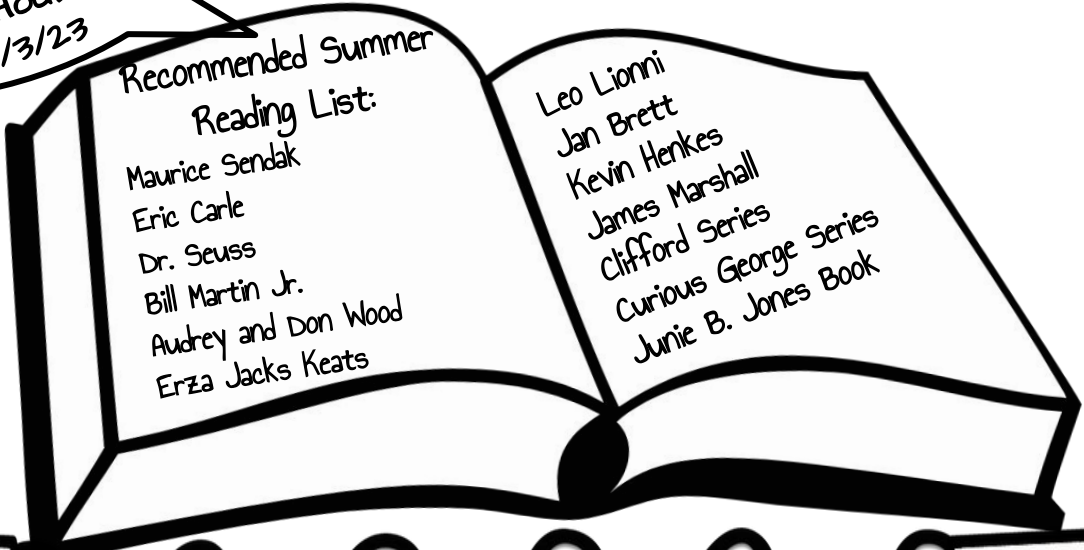 /3/23
Recommended Summer
Reading List:
Maurice Sendak
Eric Carle
Dr. Seuss
Bill Martin Jr.
Audrey and Don Wood
Erza Jacks Keats
Leo Lionni
Jan Brett
Kevin Henkes
James Marshall
Clifford Series
Curious George Series
Junie B. Jones Book